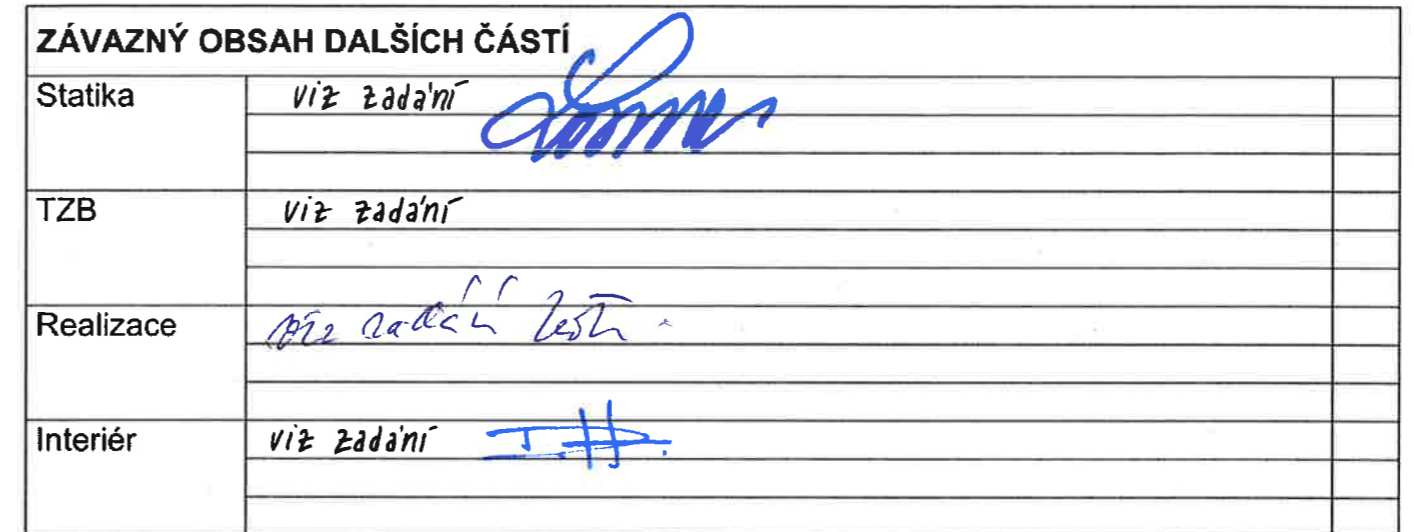 ZÁVAZNÝ OBSAH DALŠÍCH ČÁSTÍ
Statika viz zadání
TZB viz zadání
Realizace viz zadání
Interiér viz zadání